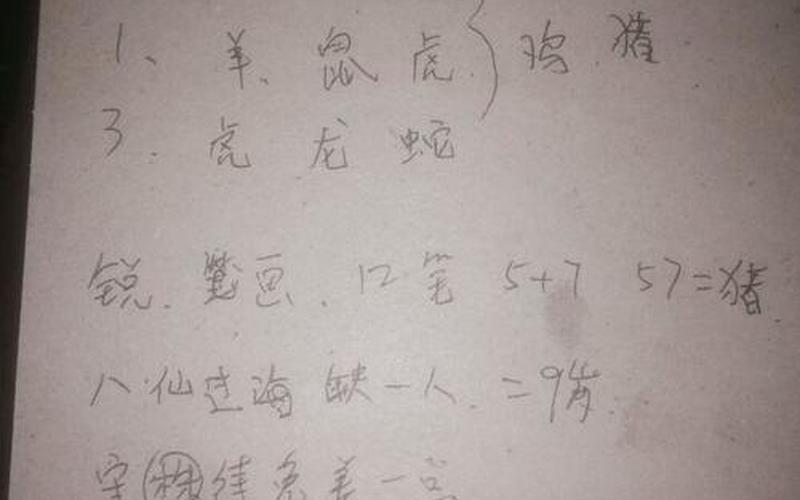 1、羊、鼠 虎 } 鸡、猪
3. 虎 龙 蛇
锐、笔画、12笔 5+7 57=猪
八仙过海缺一人. =9岁.
守株待兔差一